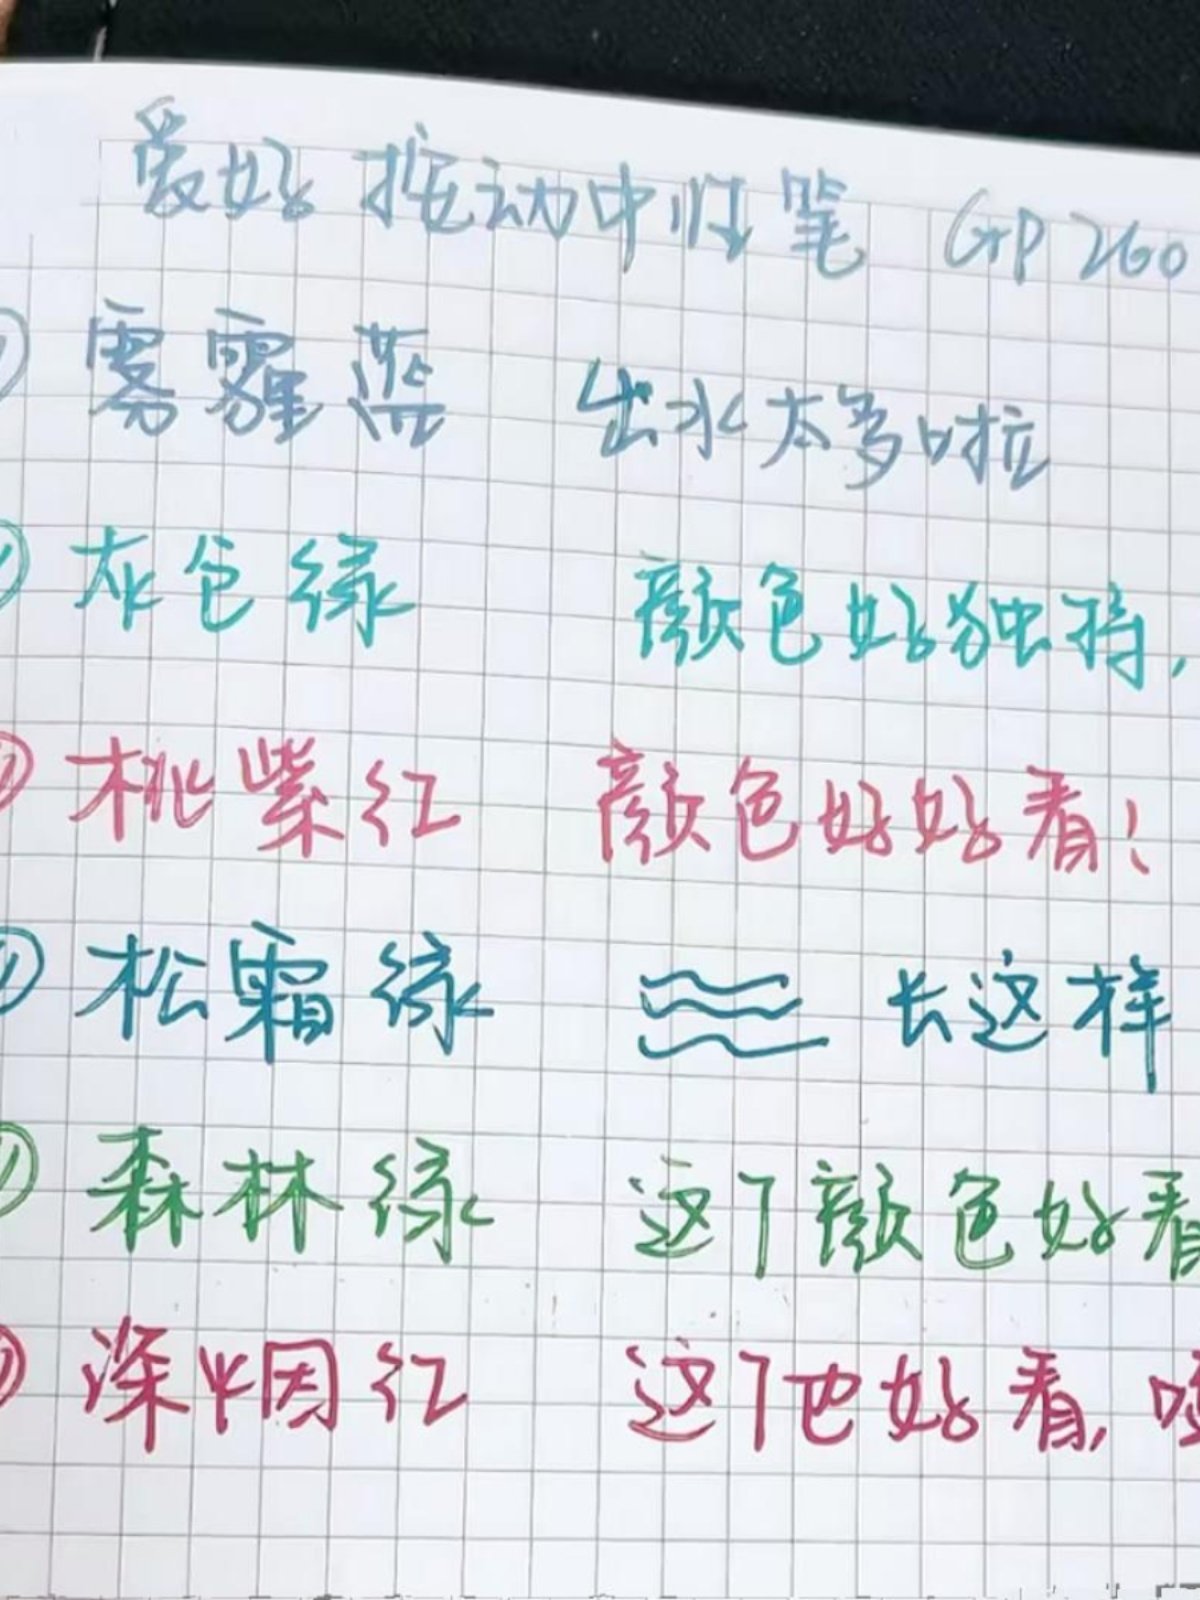 爱好 按动中性笔 GP 260
雾霾蓝 出水太多啦
灰色绿 颜色好独特,
桃紫红 颜色好好看!
松霜绿 长这样
森林绿 这个颜色好看
深烟红 这个也好看,